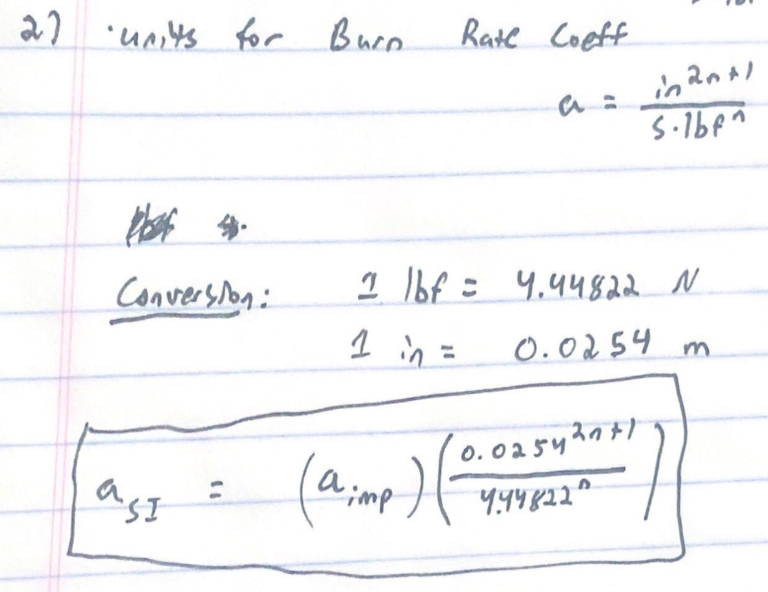 2) ·units for Burn Rate Coeff
a = in^2n+1 / s·lbf^n
Conversion: 1 lbf = 4.44822 N
1 in = 0.0254 m
a_SI = (a_imp)(0.0254^2n+1 / 4.44822^n)